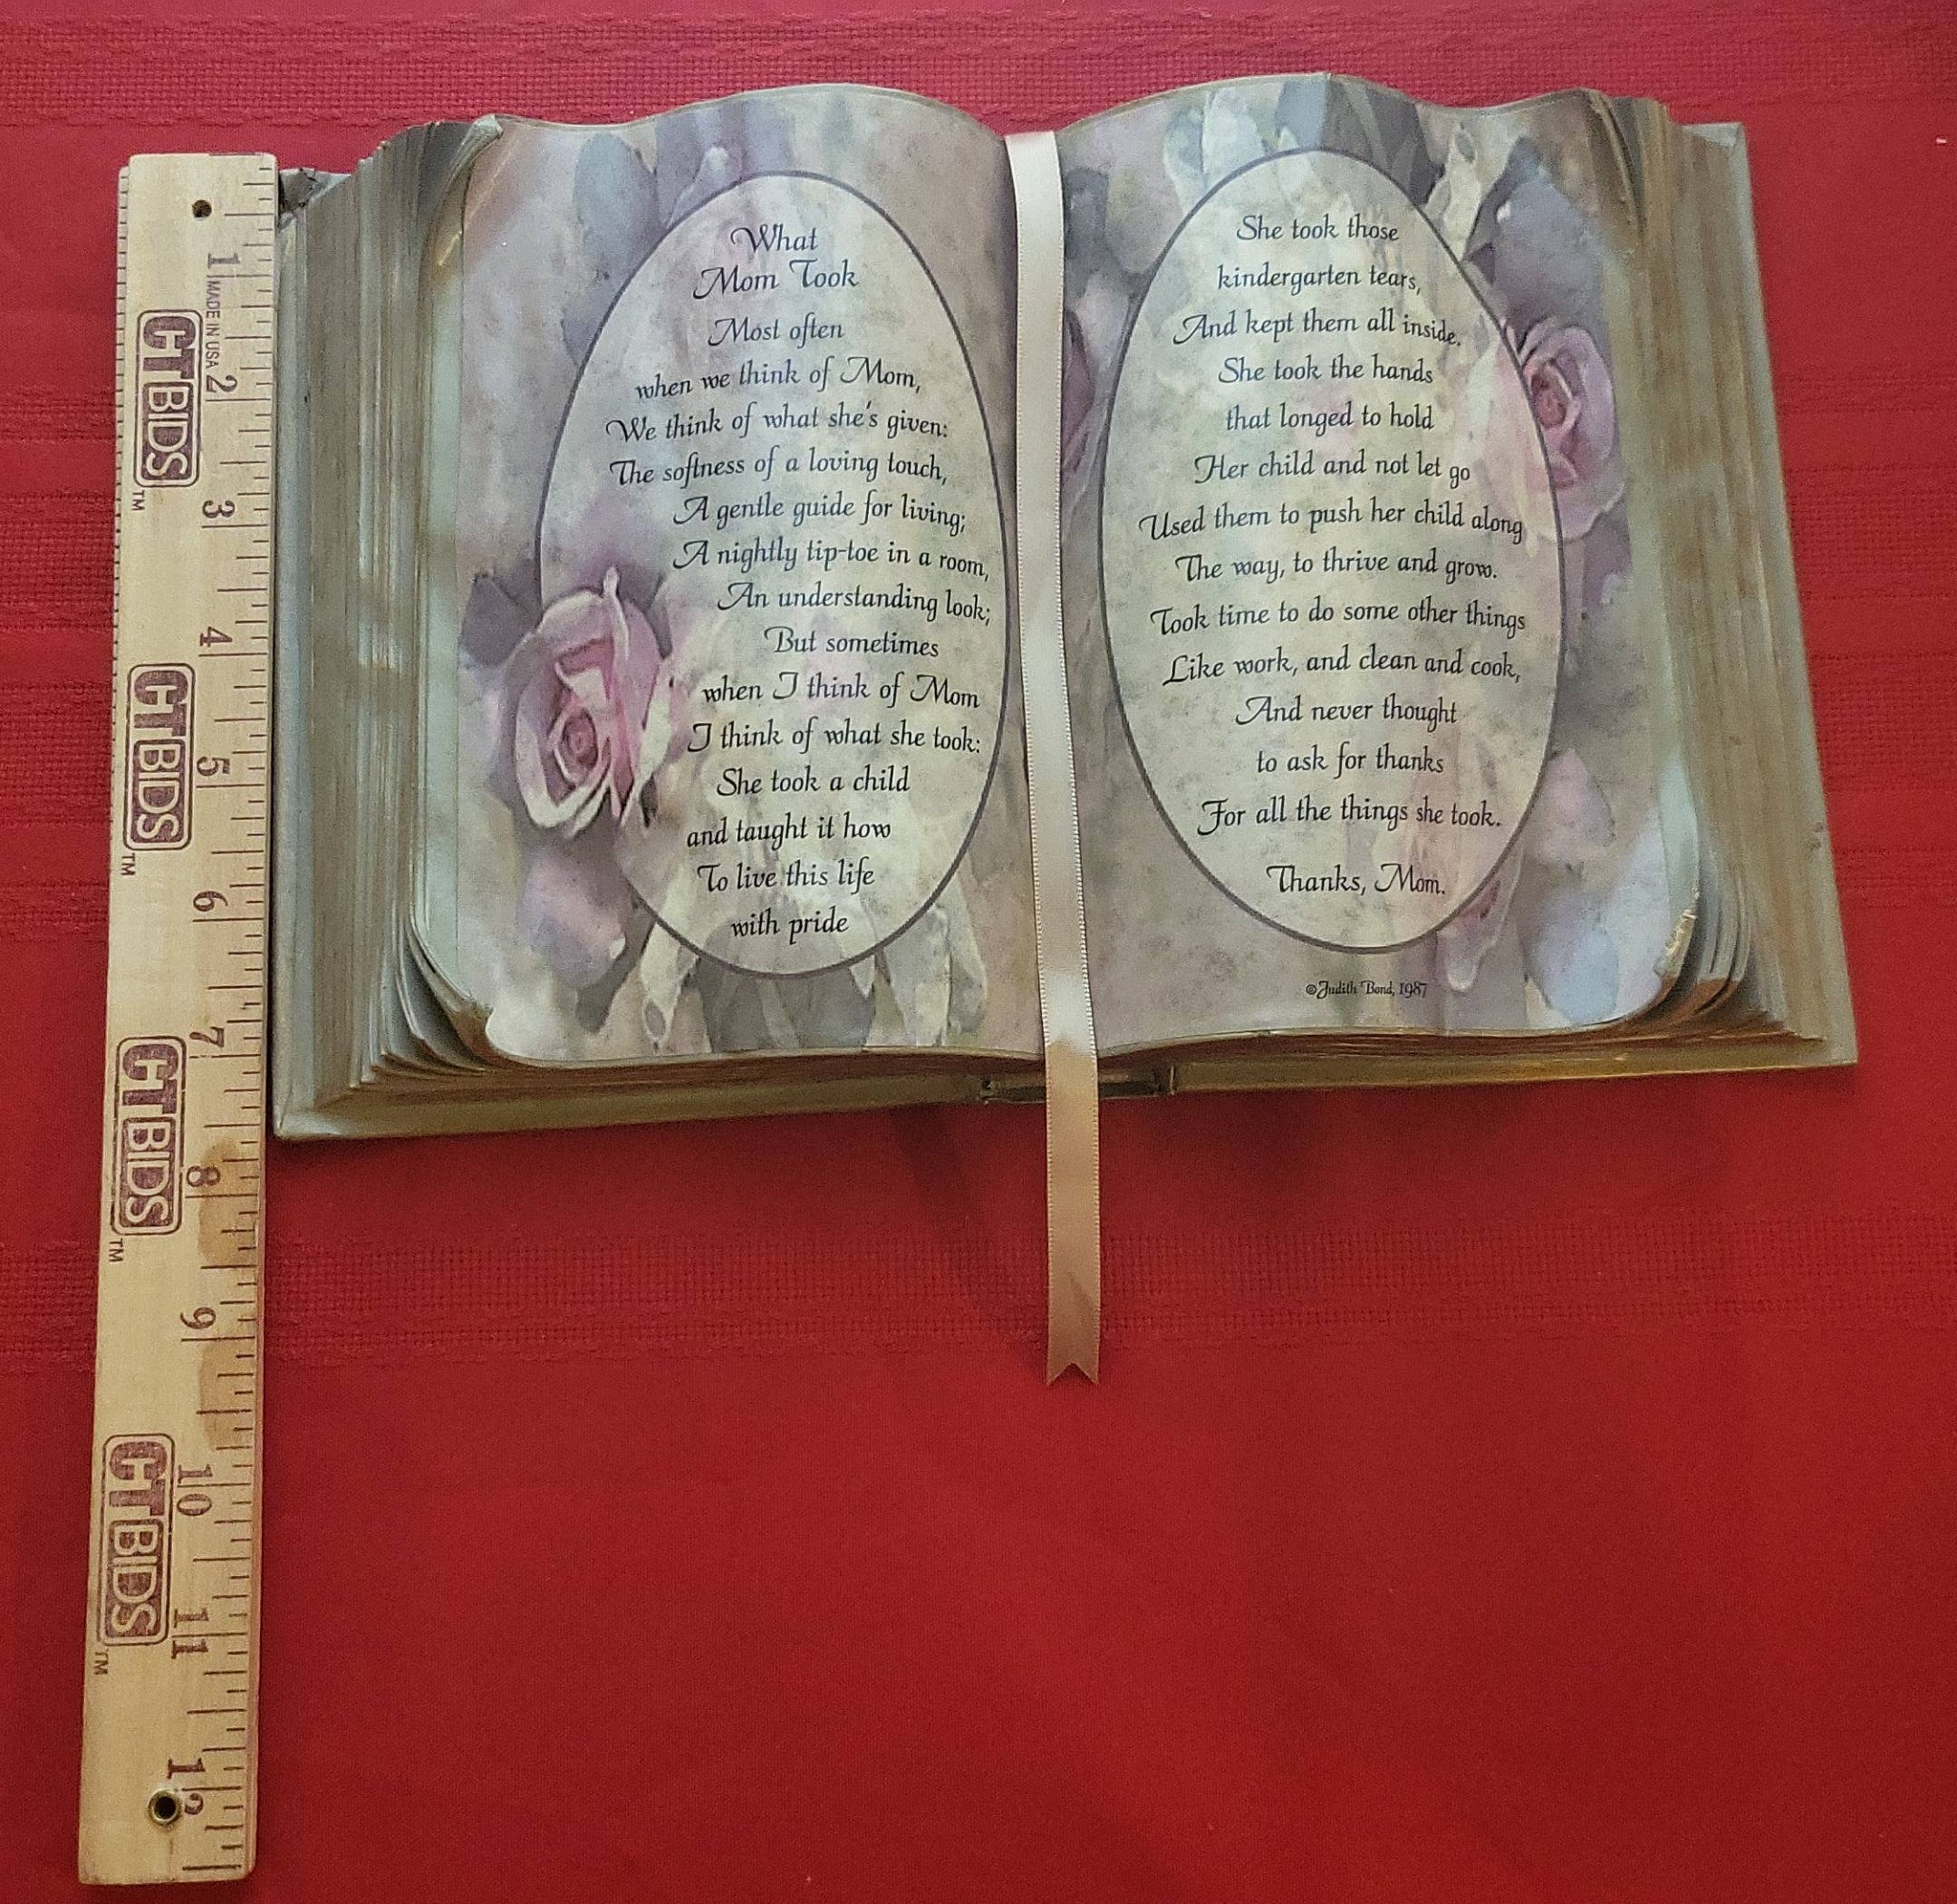 1
MADE IN USA
CTBIDS
TM
2
3
4
CTBIDS
TM
5
6
7
CTBIDS
TM
8
9
10
CTBIDS
TM
11
12
What
Mom Took
Most often
when we think of Mom,
We think of what she's given:
The softness of a loving touch,
A gentle guide for living;
A nightly tip-toe in a room,
An understanding look;
But sometimes
when I think of Mom
I think of what she took:
She took a child
and taught it how
To live this life
with pride
She took those
kindergarten tears,
And kept them all inside.
She took the hands
that longed to hold
Her child and not let go
Used them to push her child along
The way, to thrive and grow.
Took time to do some other things
Like work, and clean and cook,
And never thought
to ask for thanks
For all the things she took.
Thanks, Mom.
©Judith Bond, 1987